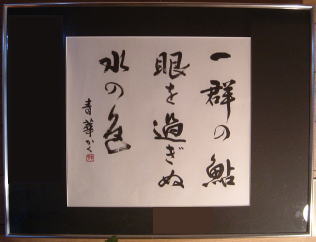 一群の鮎
眼を過ぎぬ
水の色
青華かく